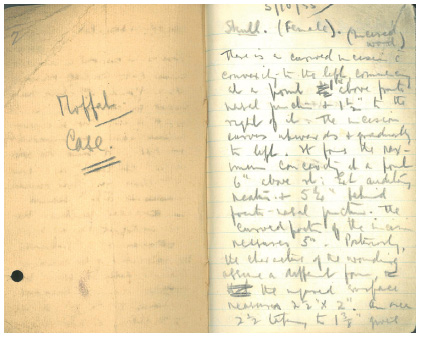 7
Moffat
Case.
5/10/35
Skull. (Female). (Incised
wound)
There is a curved incision c̄
convexity to the left, commencing
at a point above fronto
nasal junction + 1½" to the
right of it. The incision
curves upwards + gradually
to left. It forms the max-
imum convexity at a point
6" above left auditory
meatus + 5¾" behind
fronto-nasal junction. The
curved part of the incision
measures 5". Posteriorly,
the character of the wounding
assume a different form,
the exposed surface
measures 2½" x 2". An area
2½ to 1¾"